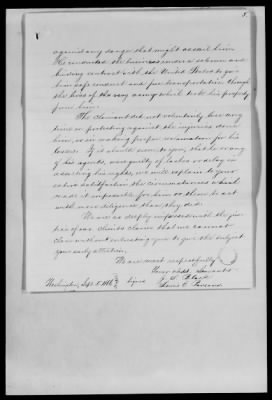 5.
against any danger that might assail him.
He conducted the business under a solemn and
binding contract with the United States to give
him safe conduct and free transportation through
the lines of the army which took his property
from him.
The claimant did not voluntarily lose any
time in protesting against the injuries done
him, or in making proper reclamation for his
losses. If it should seem to you, that he or any
of his agents, were guilty of laches or delay in
asserting his rights, we will explain to your
entire satisfaction the circumstances which
made it impossible for him or them to act
with more diligence than they did.
We are so deeply impressed with the jus-
tice of our clients claim that we cannot
close without entreating you to give the subject
your early attention.
We are most respectfully
Your obdt. Servants
Washington, Sept. 5. signed